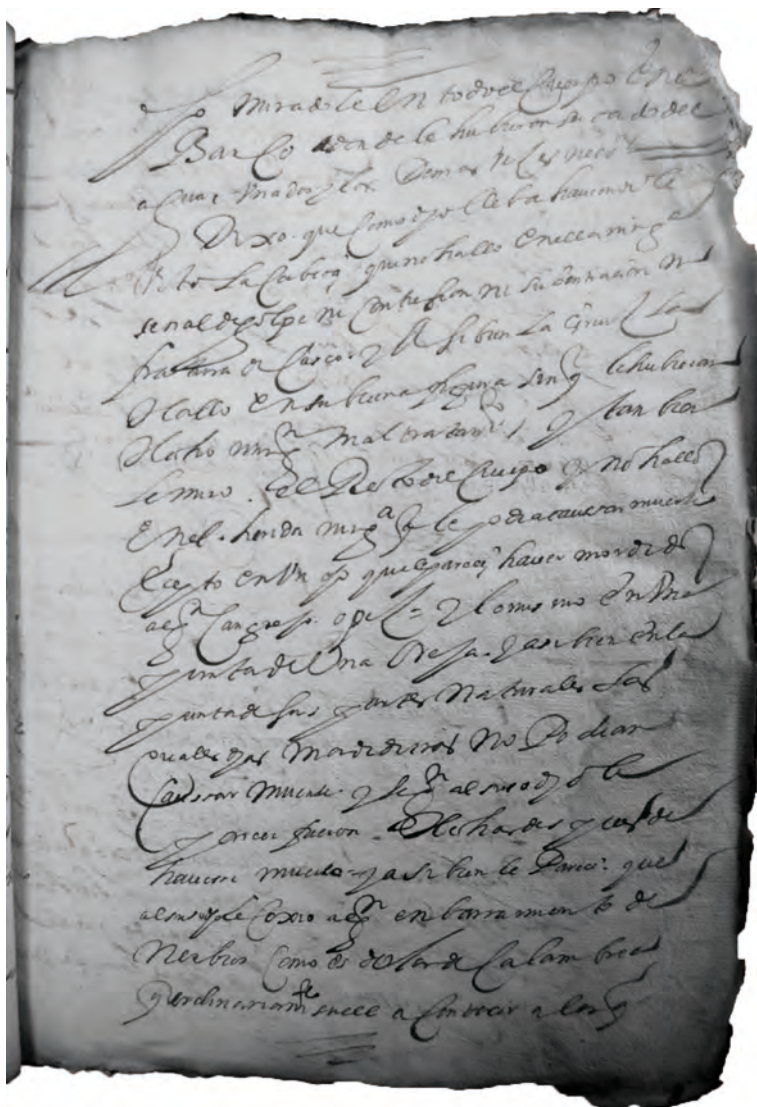 miradole en todo el cuerpo en el
Barco donde le hubieron sacado del
agua mador y los demas
Dixo. que como dho lleba haviendole
bisto La Cabeça que no hallo en ella ning^a
señal de golpe ni Contusion ni ni
fratura de Casco. y si bien La las
Hallo en su buena figura sin q le hubiesen
Hecho ning^n mal tratam^to y tan bien
le miro. el Resto del Cuerpo y no hallo
en el. herida ning^a q le podia causar muerte
Ecepto en Un ojo que le pareçe haver mordido
alg^n Cangrejo. o y lo mismo en Una
punta de Una Oreja. y asi bien en la
punta de sus partes Naturales Las
quales dhas Mordeduras No Podian
Caussar Muerte. y seg^n al suso dho le
pareçe fueron. Hechas despues de
haverse muerto y asi bien le Pareçe. que
al suso dho le Coxio alg^n en barramiento de
Nerbios Como es dolor de Calambres
q ordinariam^te suele a Contecer a los q